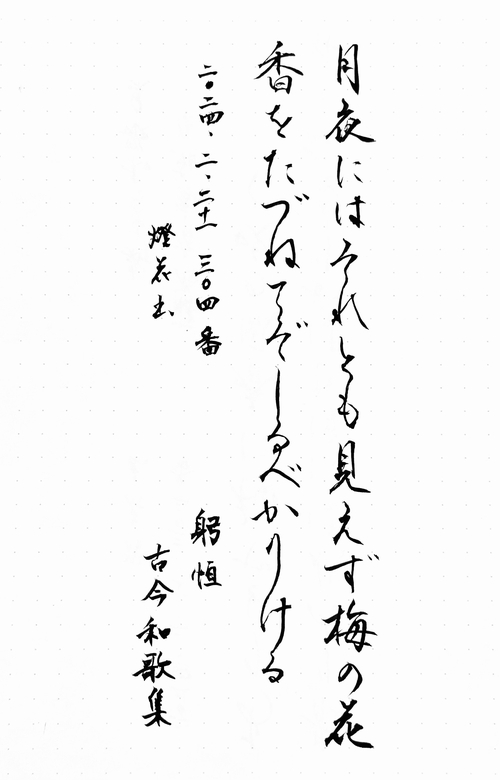 月夜にはそれとも見えず梅の花
香をたづねてぞしるべかりける
二〇二四、二、二十一 三〇四番
躬恒
燈花出
古今和歌集